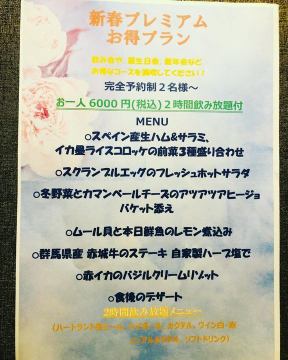 新春プレミアム
お得プラン
飲み会や、誕生日会、新年会など
お得なコースを満喫してください！
完全予約制２名様～
お一人６０００円(税込)２時間飲み放題付
MENU
○スペイン産生ハム&サラミ、
イカ墨ライスコロッケの前菜３種盛り合わせ
○スクランブルエッグのフレッシュホットサラダ
○冬野菜とカマンベールチーズのアツアツアヒージョ
バケット添え
○ムール貝と本日鮮魚のレモン煮込み
○群馬県産 赤城牛のステーキ 自家製ハーブ塩で
○赤イカのバジルクリームリゾット
○食後のデザート
２時間飲み放題メニュー
(ハートランド生ビール、カクテル、ワイン白・赤
ノンアルカクテル、ソフトドリンク)